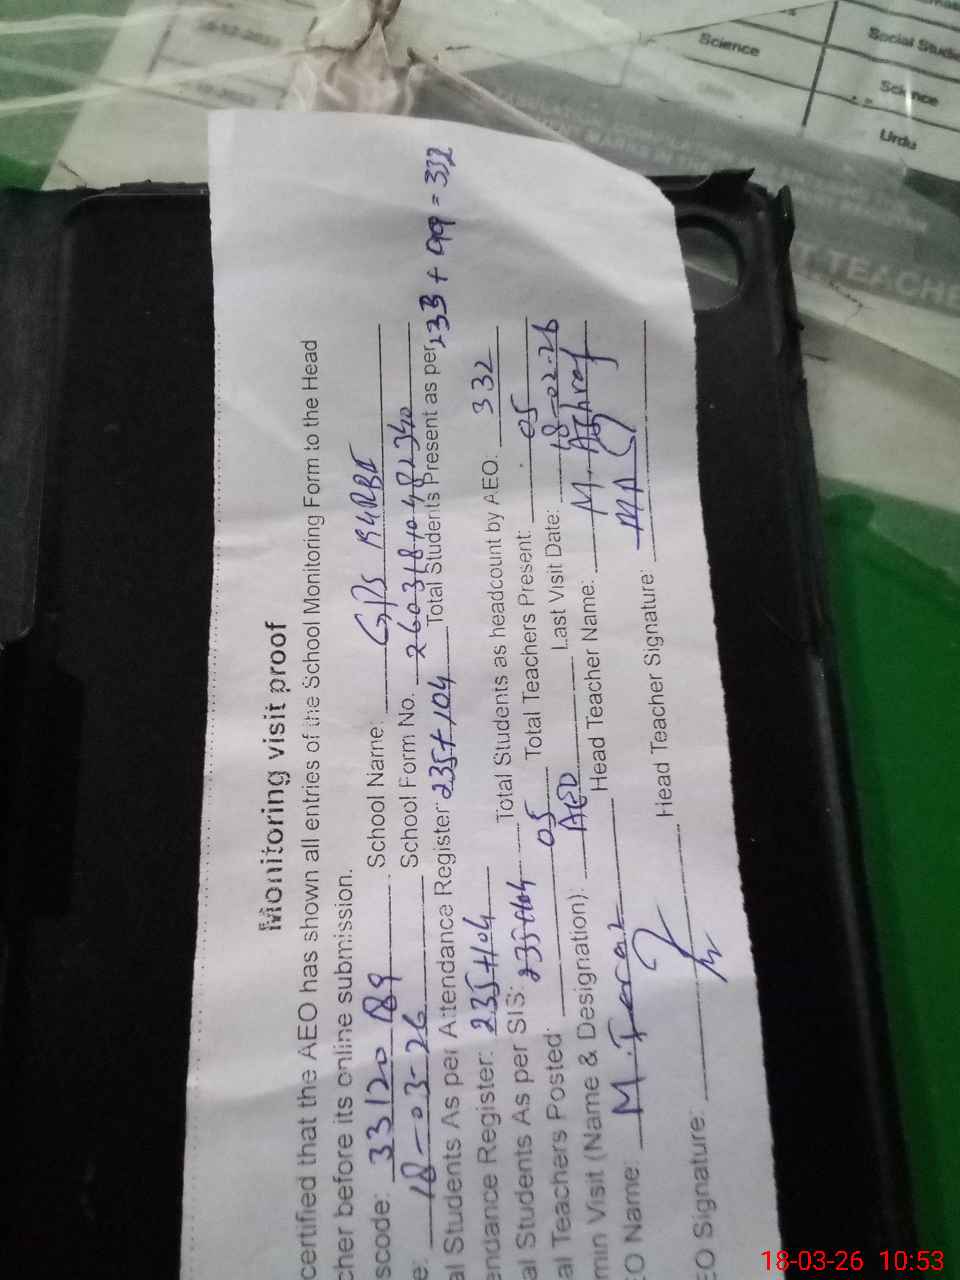 Science
Social Studie
Science
Urdu
T TEACHE
Monitoring visit proof
certified that the AEO has shown all entries of the School Monitoring Form to the Head
cher before its online submission.
scode: 33120189 School Name: GPS 194RBI
e: 18-03-26 School Form No. 260318104812340
al Students As per Attendance Register: 235+104 Total Students Present as per
endance Register: 235+104 233 + 99 = 332
al Students As per SIS: 235+104 Total Students as headcount by AEO: 332
al Teachers Posted: 05 Total Teachers Present: 05
min Visit (Name & Designation): AEO Last Visit Date: 18-02-26
O Name: M. Head Teacher Name: M. Ashraf
EO Signature: Head Teacher Signature:
18-03-26 10:53